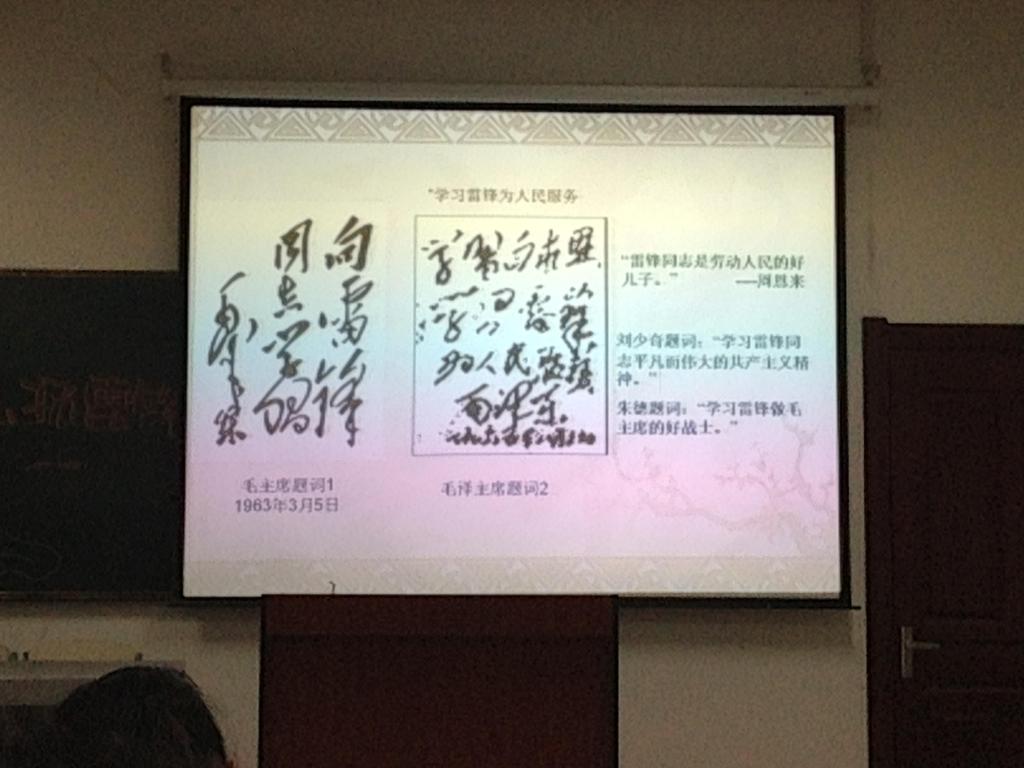 "学习雷锋为人民服务
向雷锋
同志学习
毛泽东
毛主席题词1
1963年3月5日
学习白求恩
学习雷锋
为人民服务
毛泽东
毛泽主席题词2
“雷锋同志是劳动人民的好
儿子。” ---周恩来
刘少奇题词：“学习雷锋同
志平凡而伟大的共产主义精
神。”
朱德题词：“学习雷锋做毛
主席的好战士。”